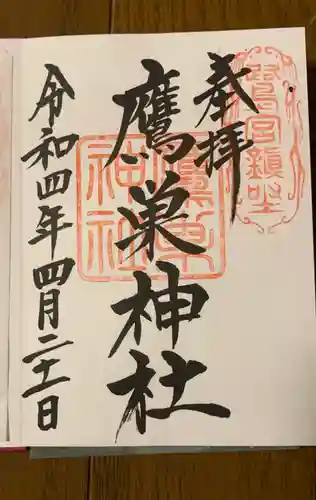 奉拝
鷹巣神社
令和四年四月二十一日
鷹巣
神社
鎮座